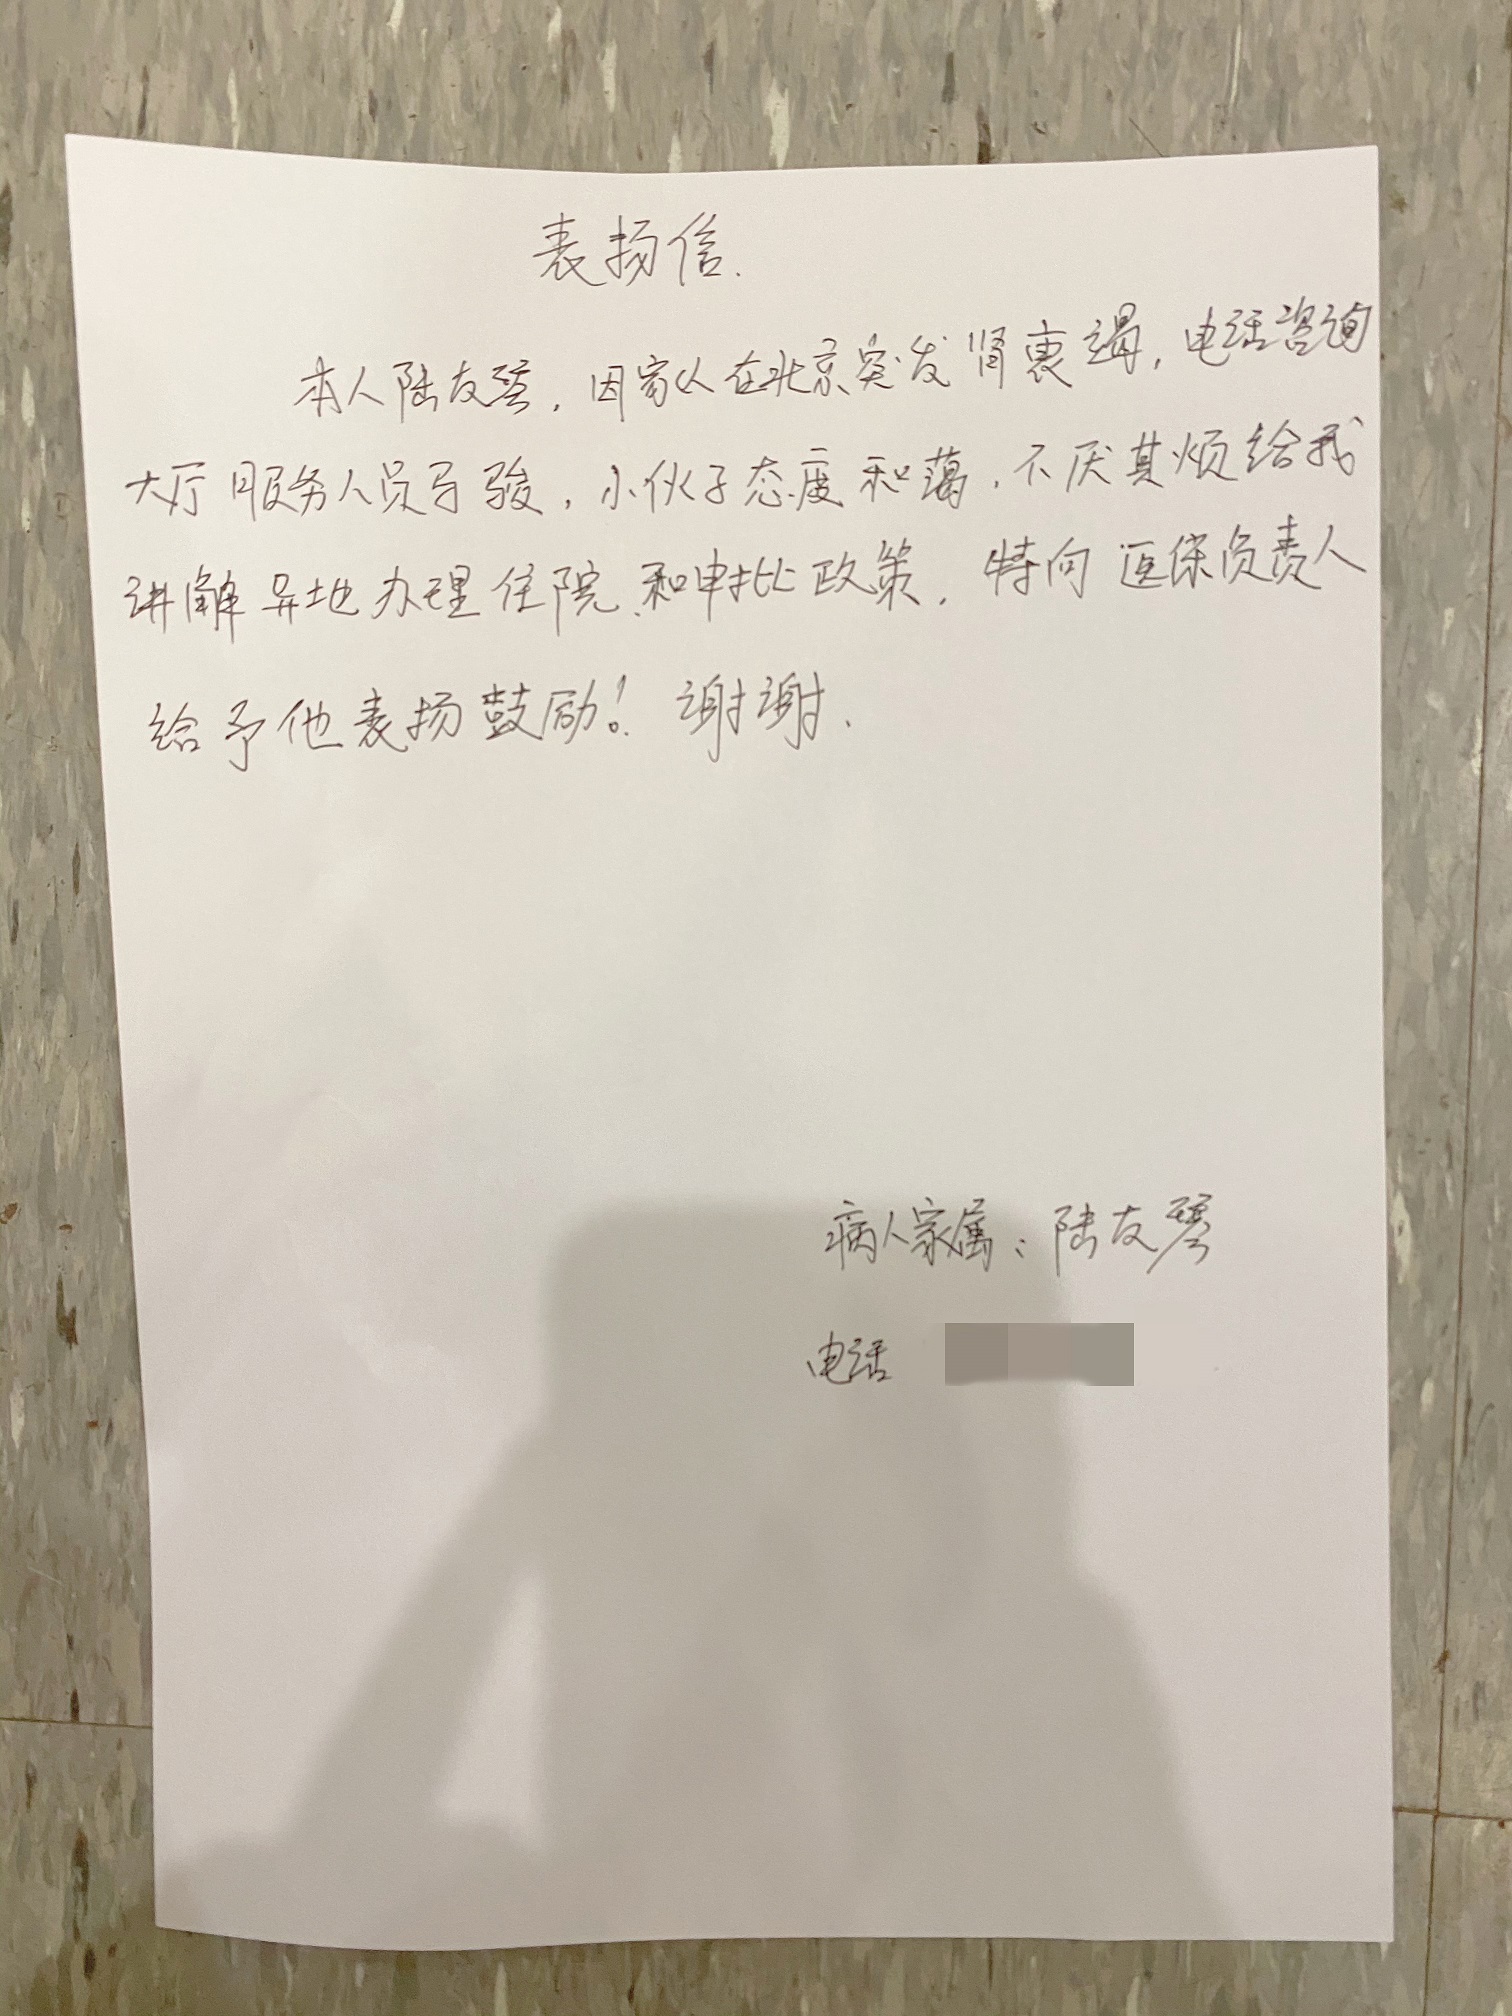 表扬信.
本人陆友琴，因家人在北京突发肾衰竭，电话咨询
大厅服务人员于骏，小伙子态度和蔼，不厌其烦给我
讲解异地办理住院和申批政策，特向医保负责人
给予他表扬鼓励！谢谢.
病人家属：陆友琴
电话